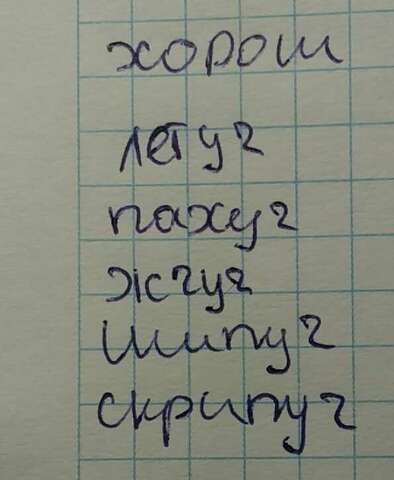 хорош
летуч
пахуч
жгуч
шипуч
скрипуч